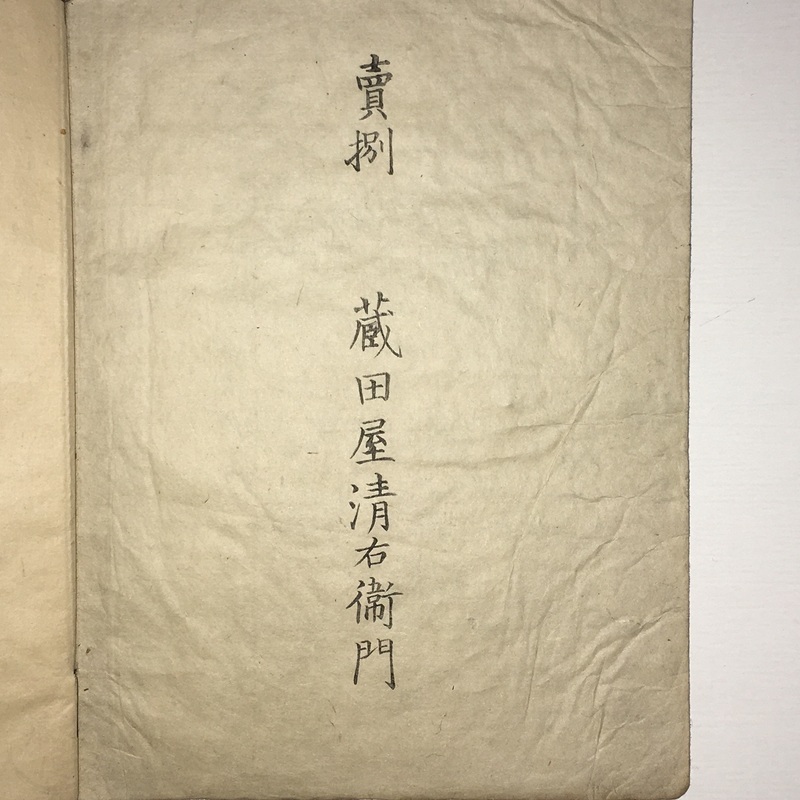 賣捌 蔵田屋清右衞門